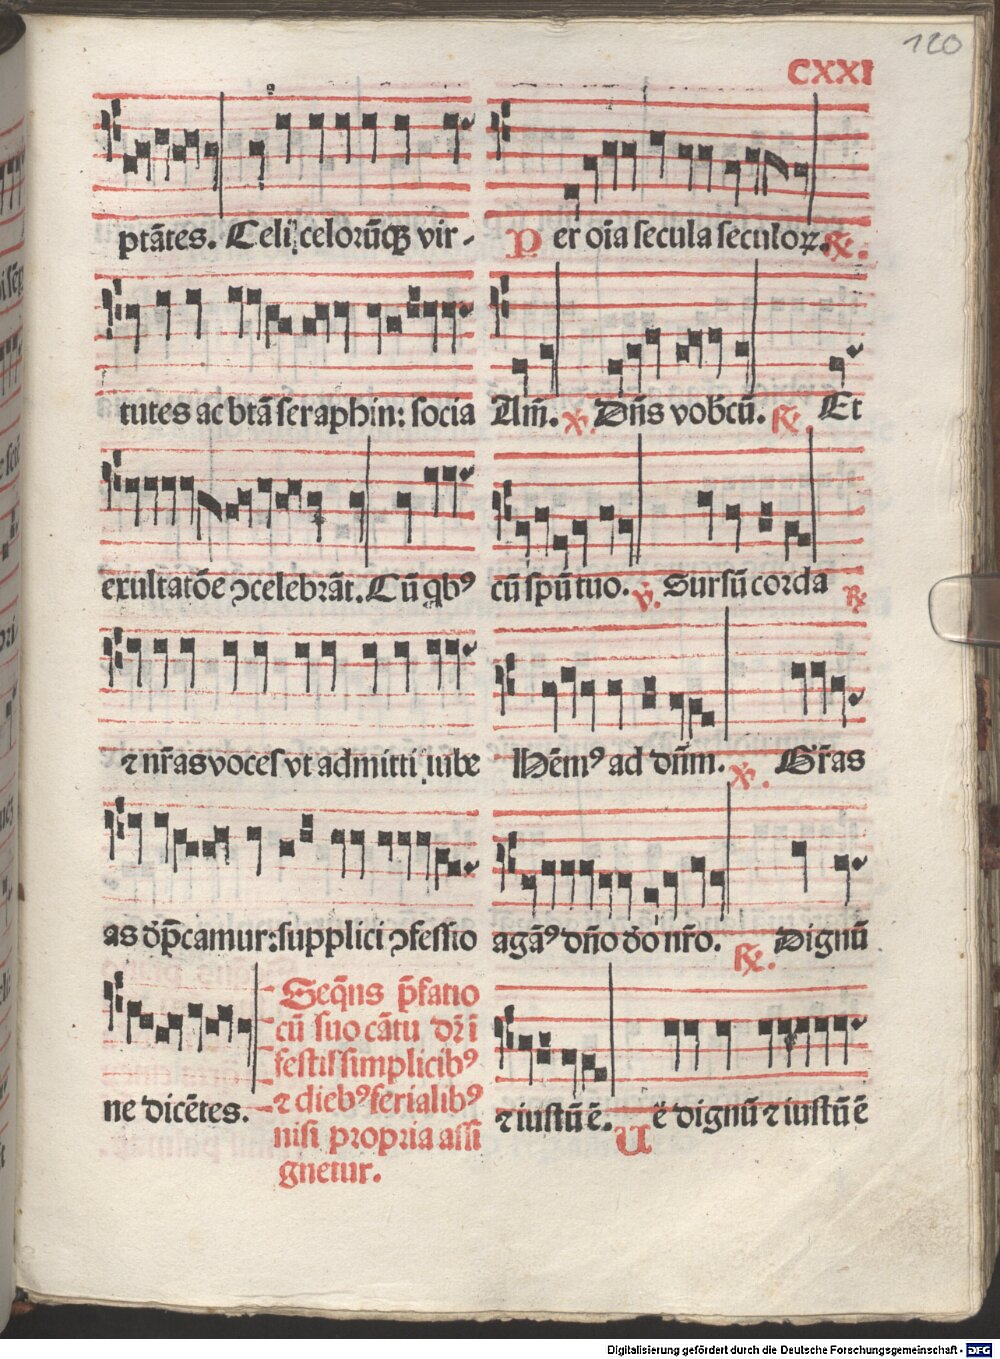 120
CXXI
ptātes. Celi celorūqꝫ vir-
tutes ac btā seraphin: socia
exultatōe ↄcelebrāt. Cū qbꝰ
⁊ nr̄as voces vt admitti iube
as dp̄camur: supplici ↄfessio
ne dicētes.
Seqn̄s p̄fatio
cū suo cātu dr̄ i
festis simplicibꝰ
⁊ diebꝰ ferialibꝰ
nisi propria assi
gnetur.
Per oīa secula seculoꝝ. ℟.
Am̄. ℣. Dn̄s vobcū. ℟. Et
cū spū tuo. ℣. Sursū corda ℟
Hēmꝰ ad dn̄m. ℣. Gr̄as
agāꝰ dn̄o do nr̄o. ℟. Dignū
⁊ iustū ē. Ue dignū ⁊ iustū ē
Digitalisierung gefördert durch die Deutsche Forschungsgemeinschaft - DFG